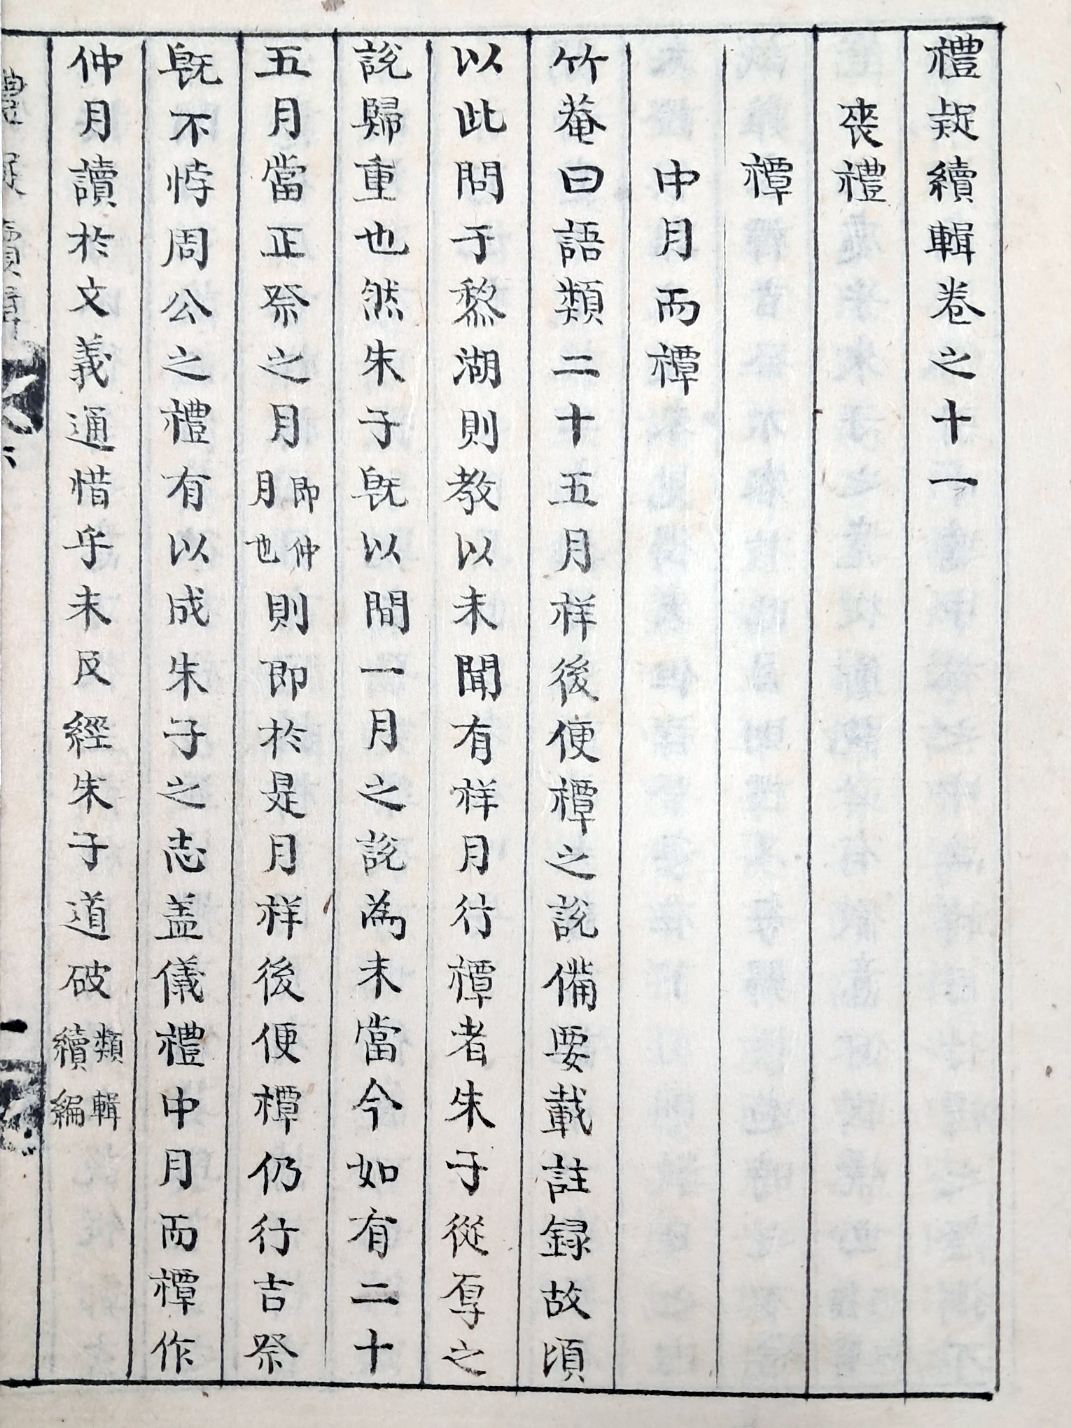 禮疑續輯卷之十一
喪禮
禫
中月而禫
竹菴曰語類二十五月祥後便禫之說備要載註録故頃
以此問于黎湖則教以未聞有祥月行禫者朱子從厚之
說歸重也然朱子旣以間一月之說為未當今如有二十
五月當正祭之月即仲月也則即於是月祥後便禫仍行吉祭
旣不悖周公之禮有以成朱子之志盖儀禮中月而禫作
仲月讀於文義通惜乎未及經朱子道破類輯續編
禮疑續輯